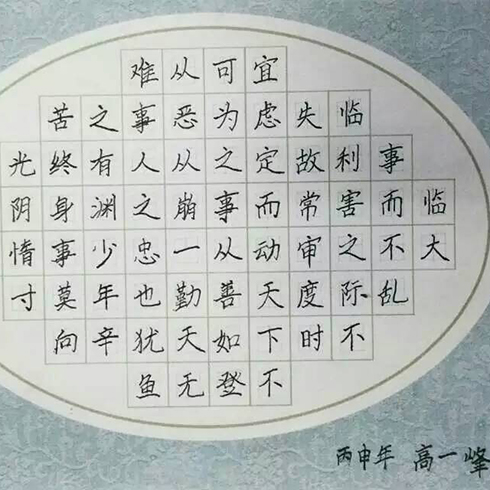 临大
事而不乱
临利害之际不
失故常审度时
宜虑定而动天下不
可为之事从善如登
从恶从崩一勤天下无
难事人之忠也犹鱼
之有渊少年辛
苦终身事莫向
光阴惰寸
丙申年 高一峰